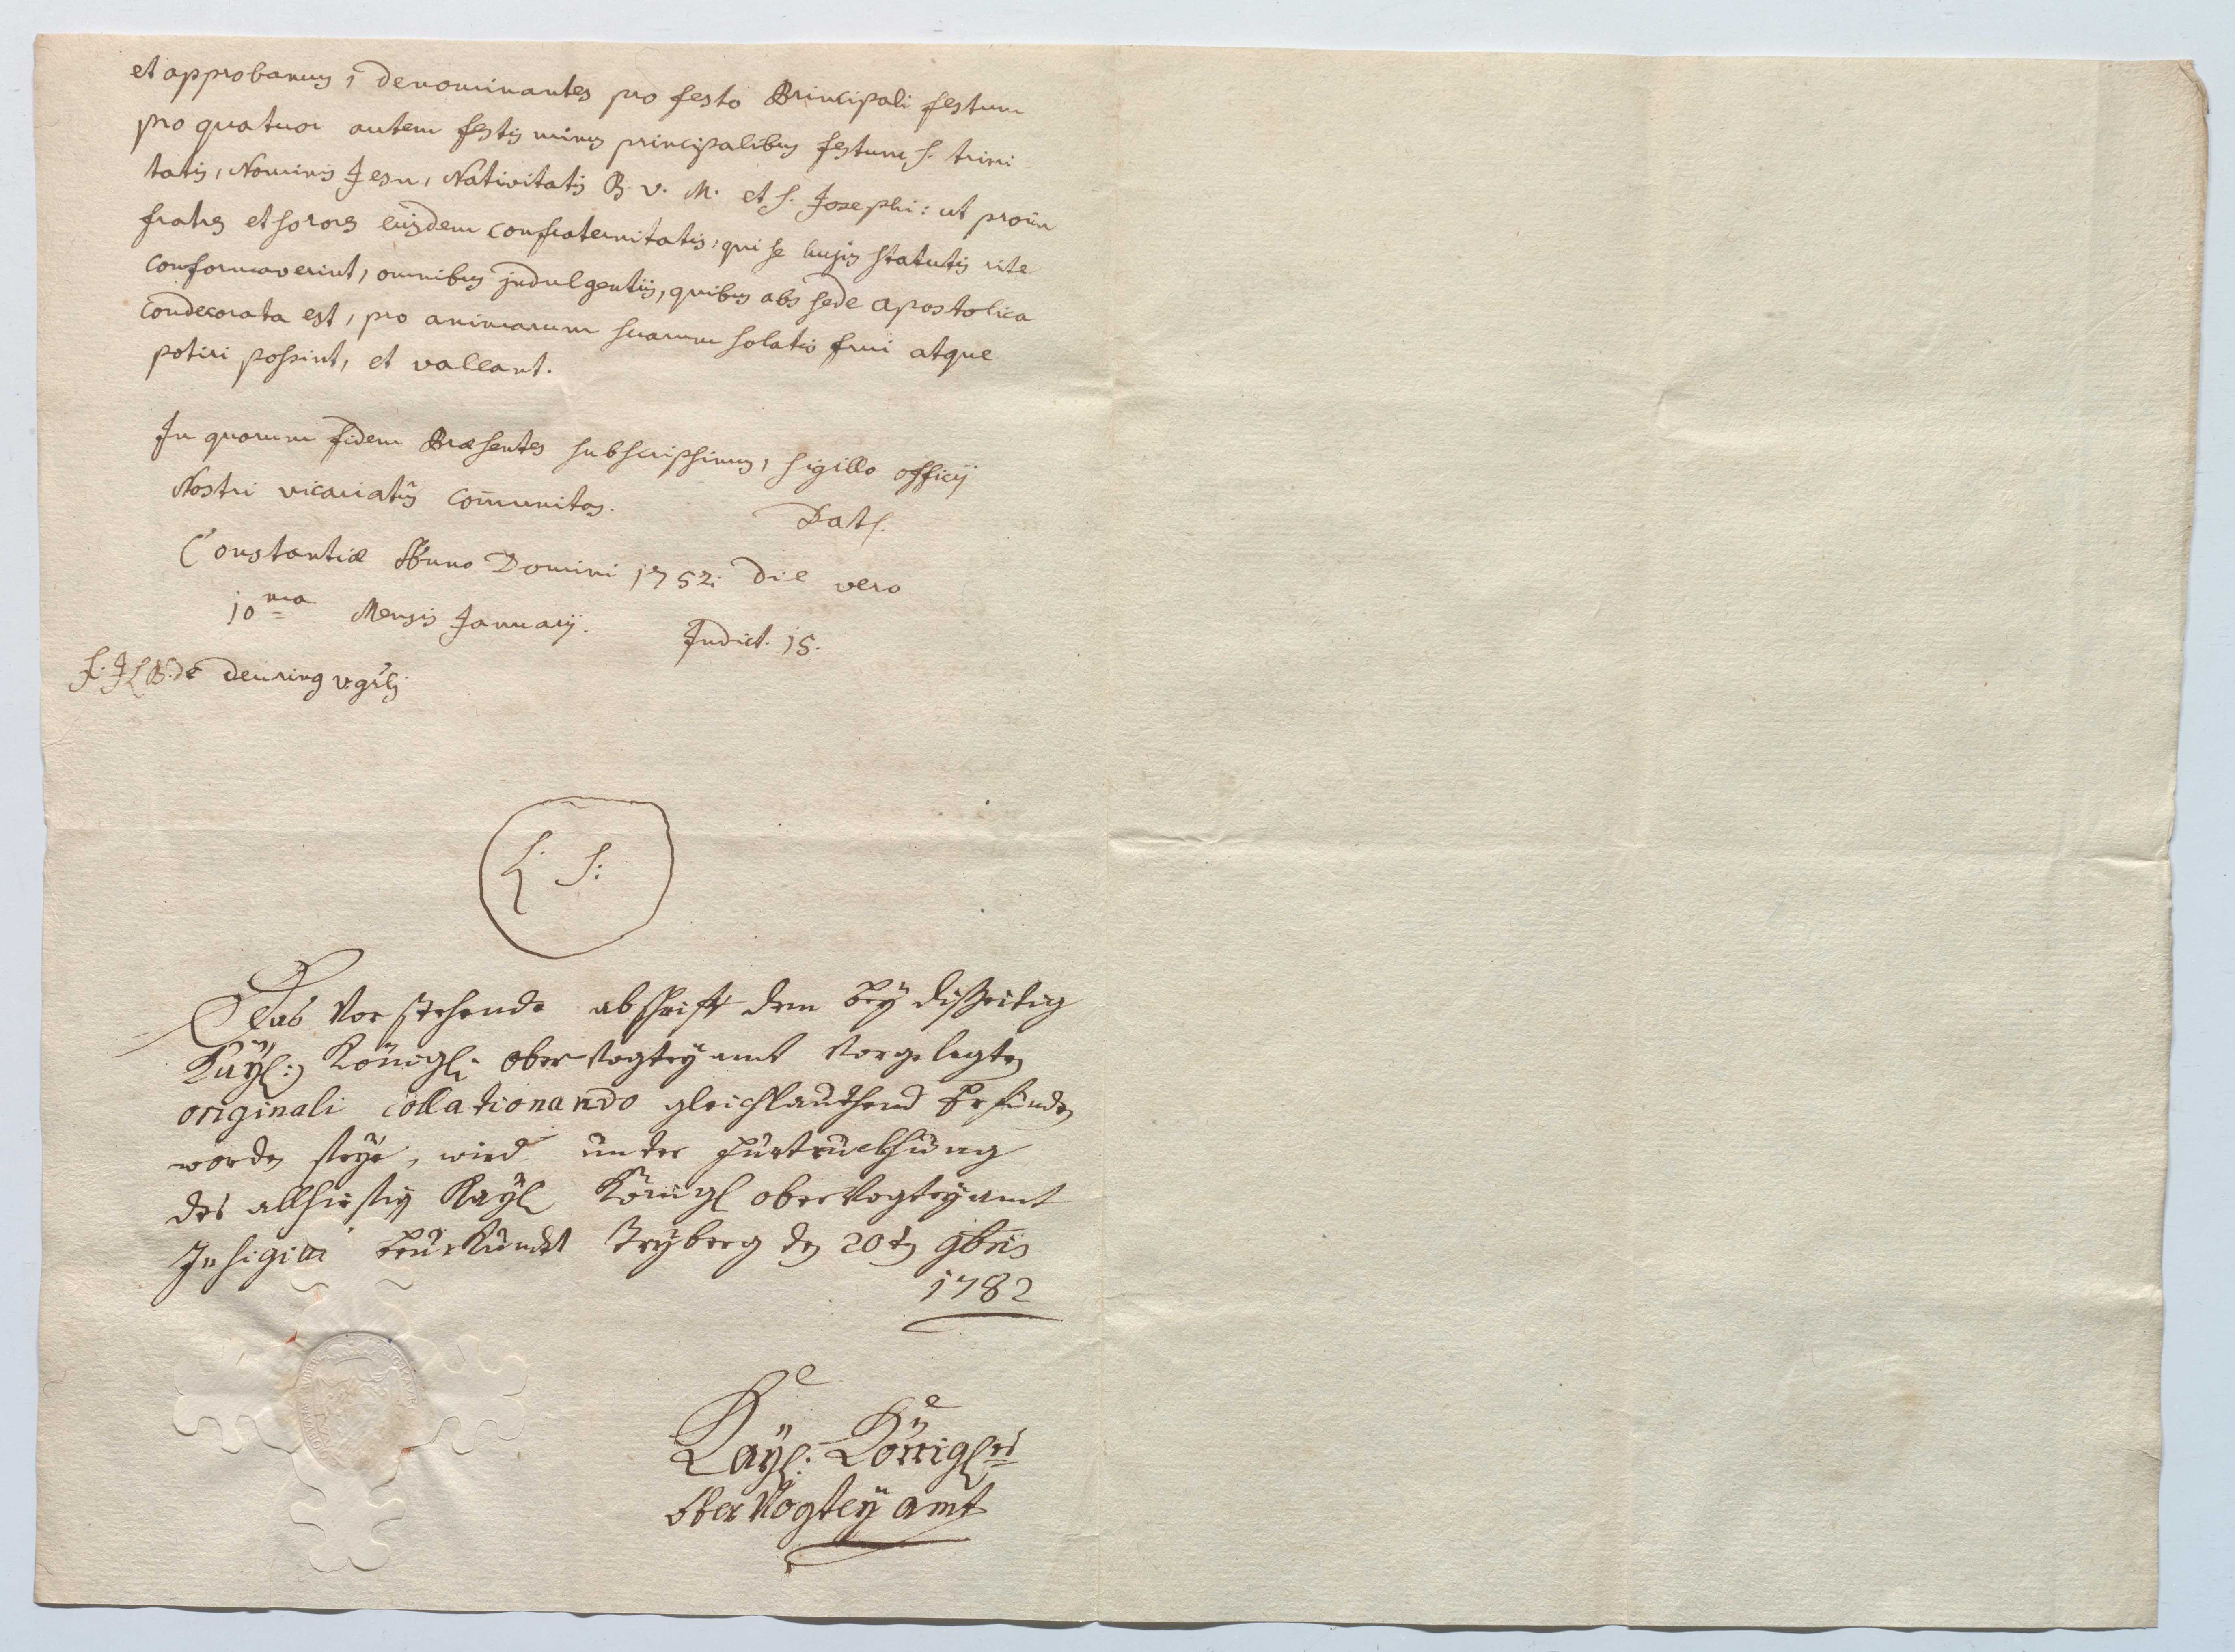 et approbamus, denominantes pro festo Principali festum
pro quatuor autem festis minus principalibus festum S. trini
tatis, Nominis Jesu, Nativitatis B. V. M. et S. Josephi: ut proin
fratres et sorores eiusdem confraternitatis, qui se hujus statutis rite
conformaverint, omnibus jndulgentiis, quibus abs sede apostolica
condecorata est, pro animarum suarum solatio frui atque
potiri possint, et valeant.
In quorum fidem Praesentes subscripsimus, sigillo officij
Nostri vicariatûs com̄unitas.
Dat.
Constantiae Anno Domini 1752. die vero
10ma Mensis Januarij. Indict. 15.
F. J. L. B. de Deuring
L. S:
Das Vorstehende abschrifft dem bey disseitig
Kayl: Königl: obervogteyamt Vorgelegten
originali collationando gleichlauthend befunden
worden seye, wird unter fürtruckhung
des allhiesig Kayl Königl oberVogteyamt
Insigill beurkundet Tryberg den 20ten 9bris
1782
Kayl: Königl:
Ober Vogtey amt